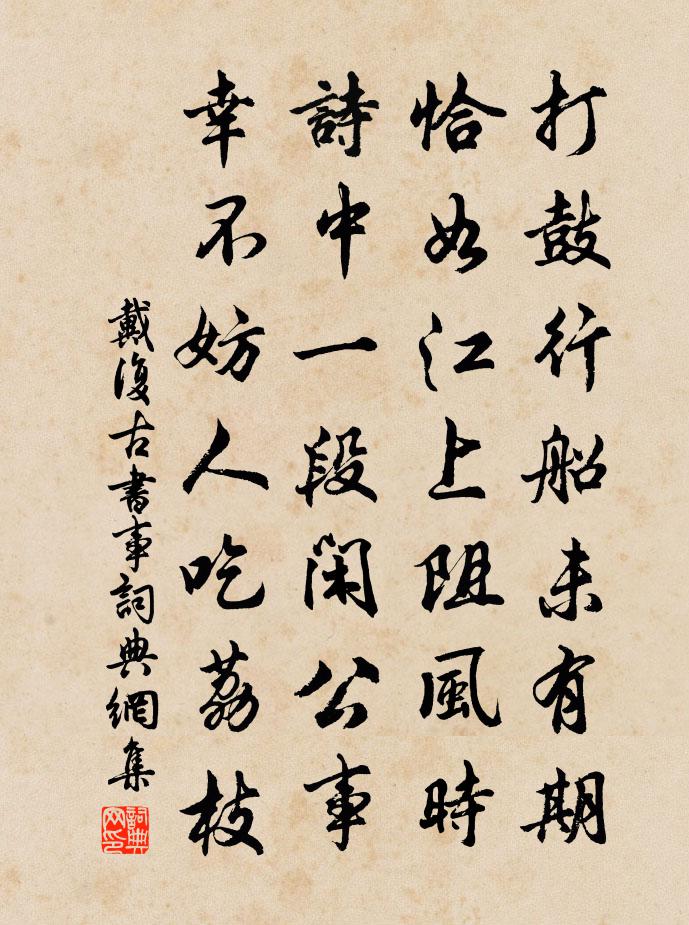 打鼓行船未有期
恰如江上阻風時
詩中一段閑公事
幸不妨人吃荔枝
戴復古書事詞典網集
詞典网印